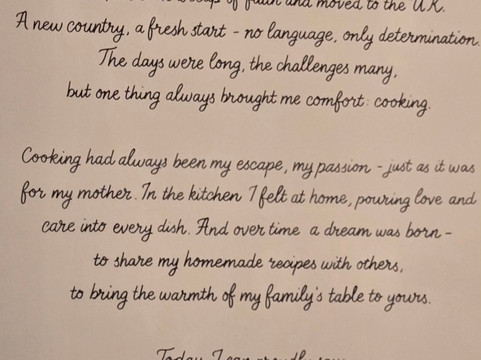 of faith and moved to the U.K.
A new country, a fresh start - no language, only determination.
The days were long, the challenges many,
but one thing always brought me comfort: cooking.
Cooking had always been my escape, my passion - just as it was
for my mother. In the kitchen I felt at home, pouring love and
care into every dish. And over time a dream was born -
to share my homemade recipes with others,
to bring the warmth of my family's table to yours.
Today, I can proudly